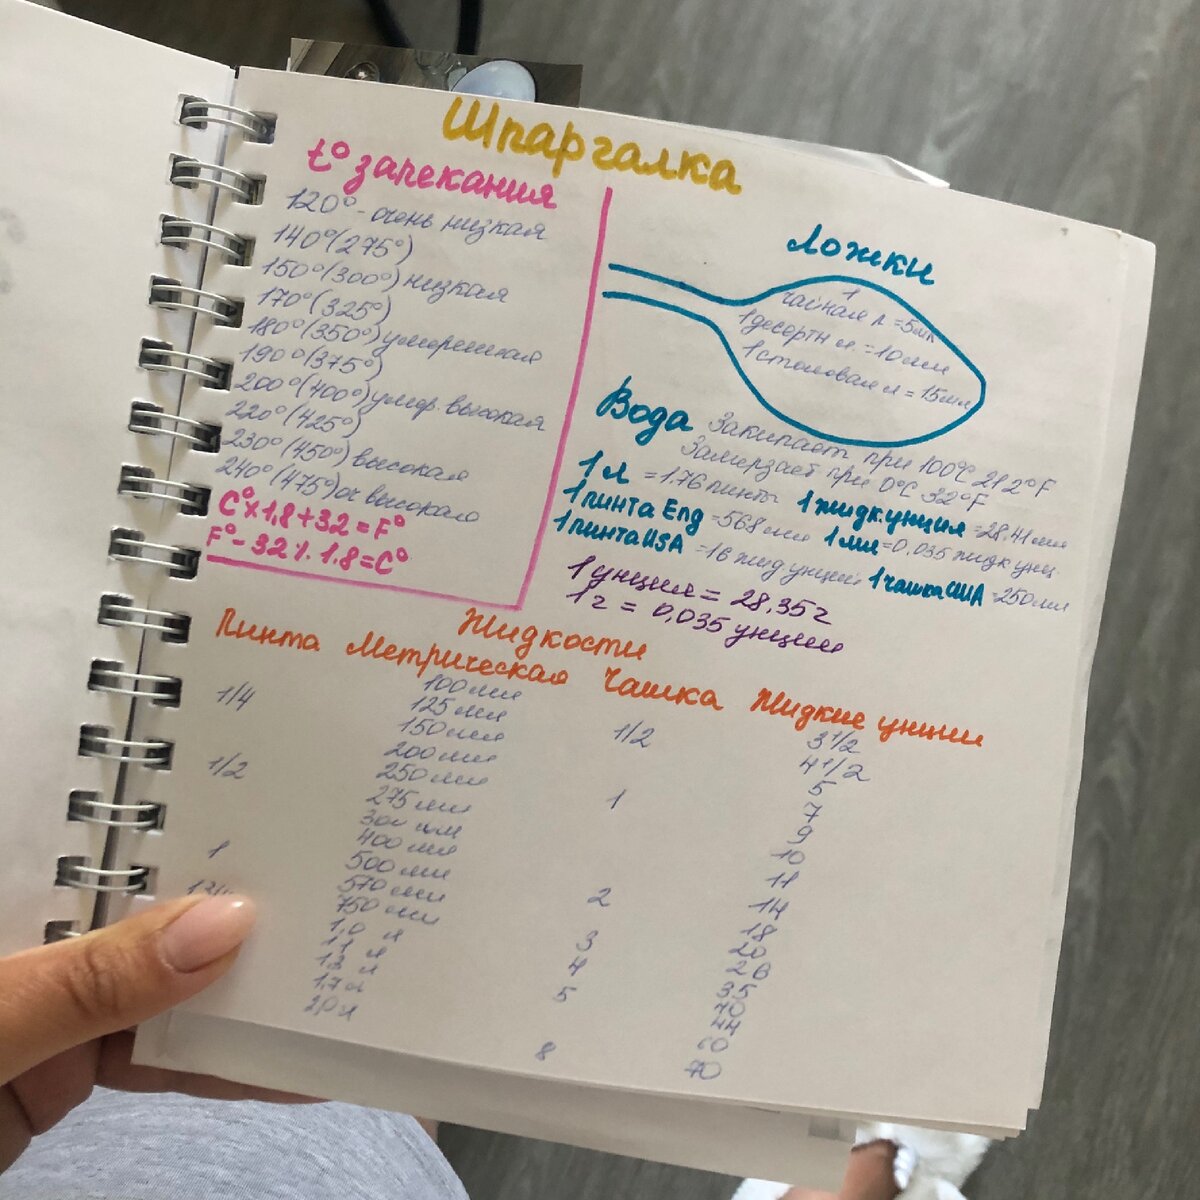 Шпаргалка
t° запекания
120° - очень низкая
140° (275°)
150° (300°) низкая
170° (325°)
180° (350°) умеренная
190° (375°)
200° (400°) умер. высокая
220° (425°)
230° (450°) высокая
240° (475°) оч высокая
C° x 1,8 + 32 = F°
F° - 32 ./. 1.8 = C°
Ложки
1
чайная л = 5мл
1 десертн л. = 10 мл
1 столовая л = 15мл
Вода Закипает при 100°C 212°F
Замерзает при 0°C 32°F
1 л = 1.76 пинты 1 жидк. унция = 28.41 мл
1 пинта Eng = 568 мл 1 мл = 0,035 жидк унц.
1 пинта USA = 16 жид унций 1 чашка США = 250 мл
1 унция = 28.35 г
1 г = 0,035 унции
Жидкости
Пинта Метрическая Чашка Жидкие унции
100 мл 3 1/2
1/4 125 мл 1/2 4 1/2
150 мл 5
200 мл 7
1/2 250 мл 1 9
275 мл 10
300 мл 11
400 мл 14
1 500 мл 2 18
570 мл 20
750 мл 3 26
1,0 л 4 35
1,1 л 40
1,3 л 5 44
1,7 л 60
2,0 л 8 70